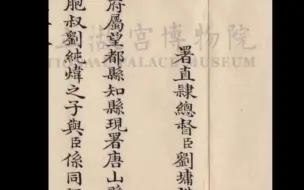 署直隸總督臣劉墉
府屬望都縣知縣現署唐山縣
胞叔劉純煒之子與臣係同
宮博物院
PALACE MUSEUM